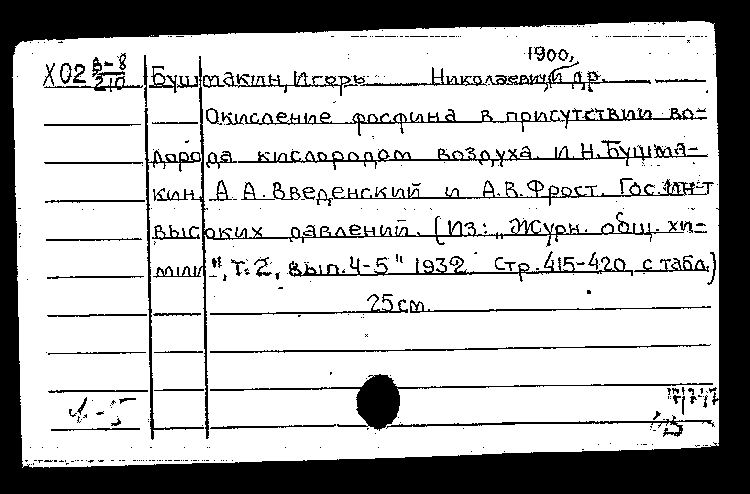 1900,
Х02 В-8/210 Бушмакин, Игорь Николаевич и др.
Окисление фосфина в присутствии во-
дорода кислородом воздуха. И.Н.Бушма-
кин, А.А.Введенский и А.В.Фрост. Гос.ин-т
высоких давлений. (Из: „Журн. общ. хи-
мии", Т.2, вып.4-5" 1932 стр.415-420, с табл.)
25 см.